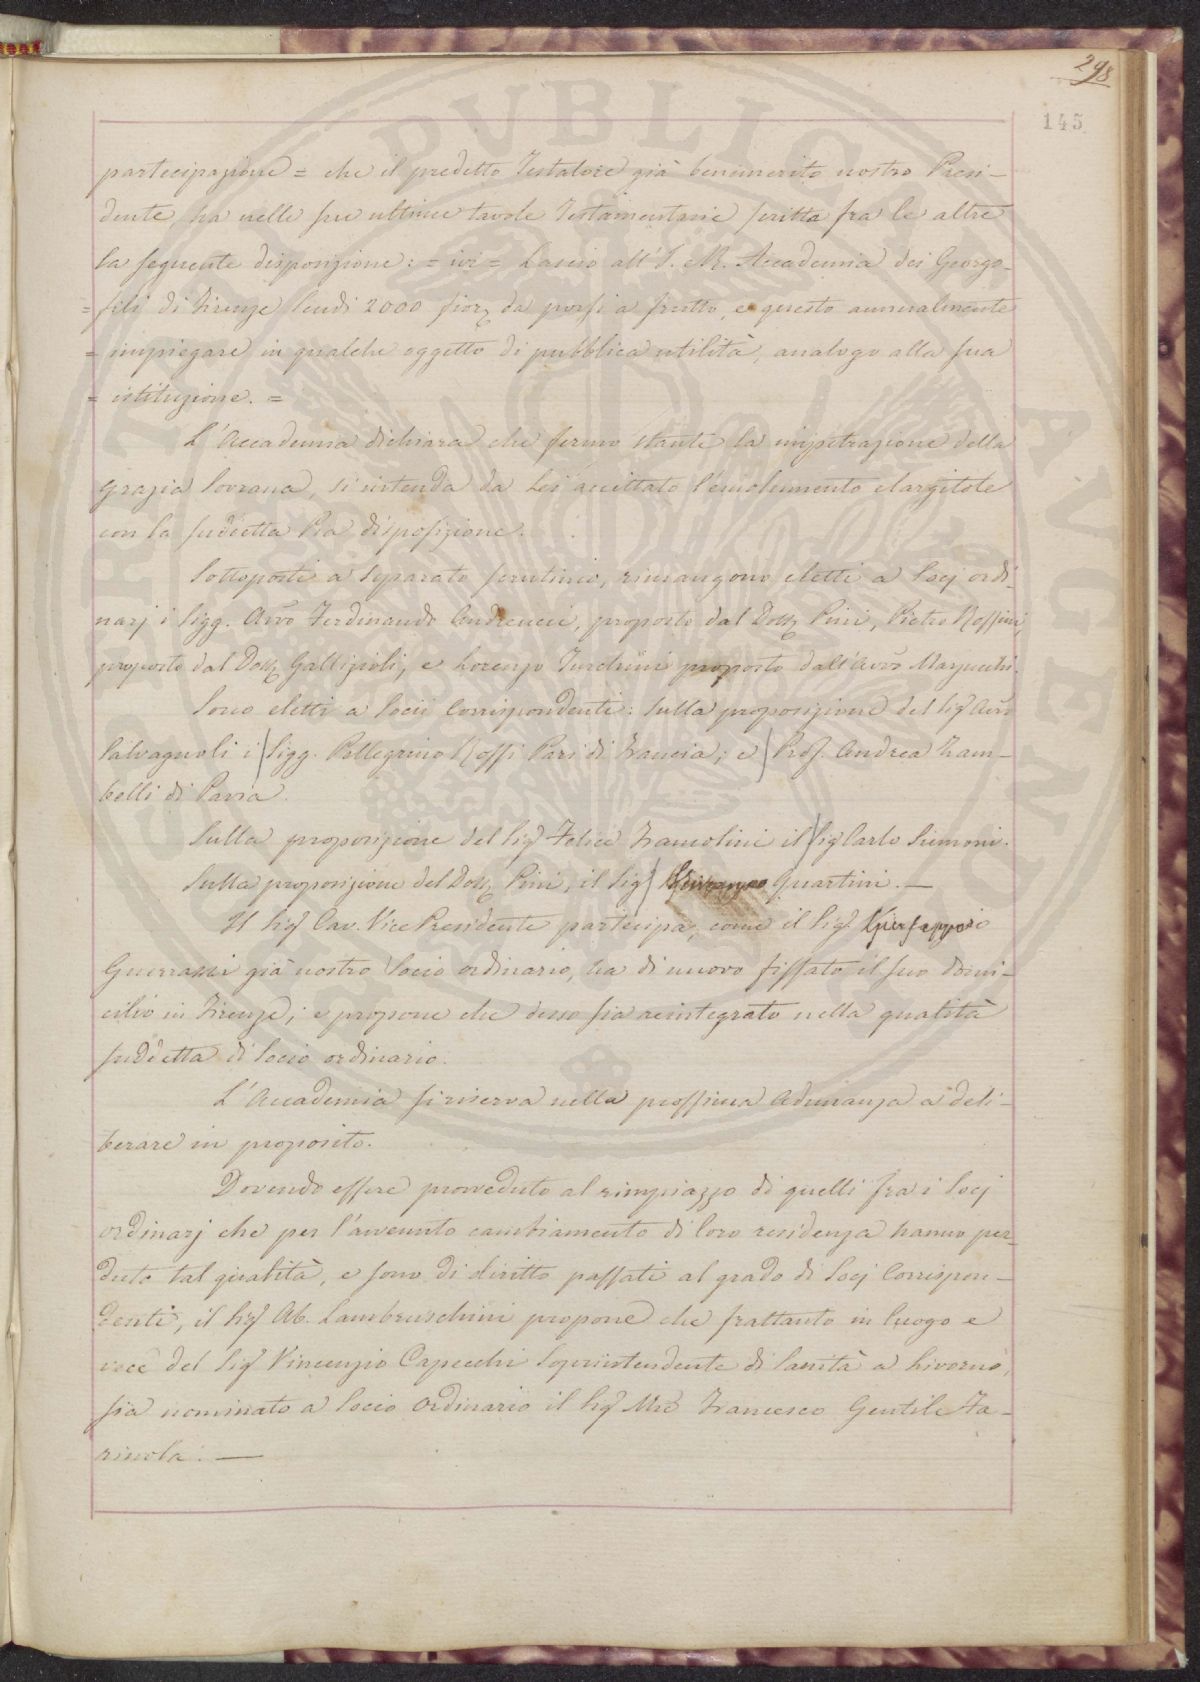 298
145
partecipazione = che il predetto Testatore già benemerito nostro Presi-
dente, ha nelle sue ultime tavole Testamentarie scritta fra le altre
la seguente disposizione: = ivi = Lascio all'I. e R. Accademia dei Georgo-
= fili di Firenze Scudi 2000 fior. da porsi a frutto, e questo annualmente
= impiegare in qualche oggetto di pubblica utilità, analogo alla sua
= istituzione. =
L'Accademia dichiara che fermo stante la impetrazione della
grazia Sovrana, si intenda da Lei accettato l'emolumento elargitole
con la suddetta Pia disposizione.
Sottoposti a separato scrutinio, rimangono eletti a Socj ordi-
narj i Sigg. Avv.o Ferdinando Andreucci, proposto dal Dott. Pini, Pietro Rossini,
proposto dal Dott. Gallizioli, e Lorenzo Turchini proposto dall'Avv.o Marzucchi.
Sono eletti a Socii Corrispondenti: Sulla proposizione del Sig. Avv.o
Salvagnoli i Sigg. Pellegrino Rossi Pari di Francia; e Prof. Andrea Zam-
belli di Pavia.
Sulla proposizione del Sig. Felice Francolini il Sig. Carlo Simoni.
Sulla proposizione del Dott. Pini, il Sig. Quartini. —
Il Sig. Cav. Vice Presidente partecipa, come il Sig. Giuseppe
Guerrazzi già nostro Socio ordinario, ha di nuovo fissato il suo domi-
cilio in Firenze; e propone che desso sia reintegrato nella qualità
suddetta di Socio ordinario.
L'Accademia si riserva nella prossima Adunanza a deli-
berare in proposito.
Dovendo essere provveduto al rimpiazzo di quelli fra i Socj
ordinarj che per l'avvenuto cambiamento di loro residenza hanno per-
duto tal qualità, e sono di diritto passati al grado di Socj Corrispon-
denti, il Sig. Ab. Lambruschini propone che frattanto in luogo e
vece del Sig. Vincenzio Capecchi Soprintendente di Sanità a Livorno,
sia nominato a Socio Ordinario il Sig. M.se Francesco Gentile Fa-
rinola. —